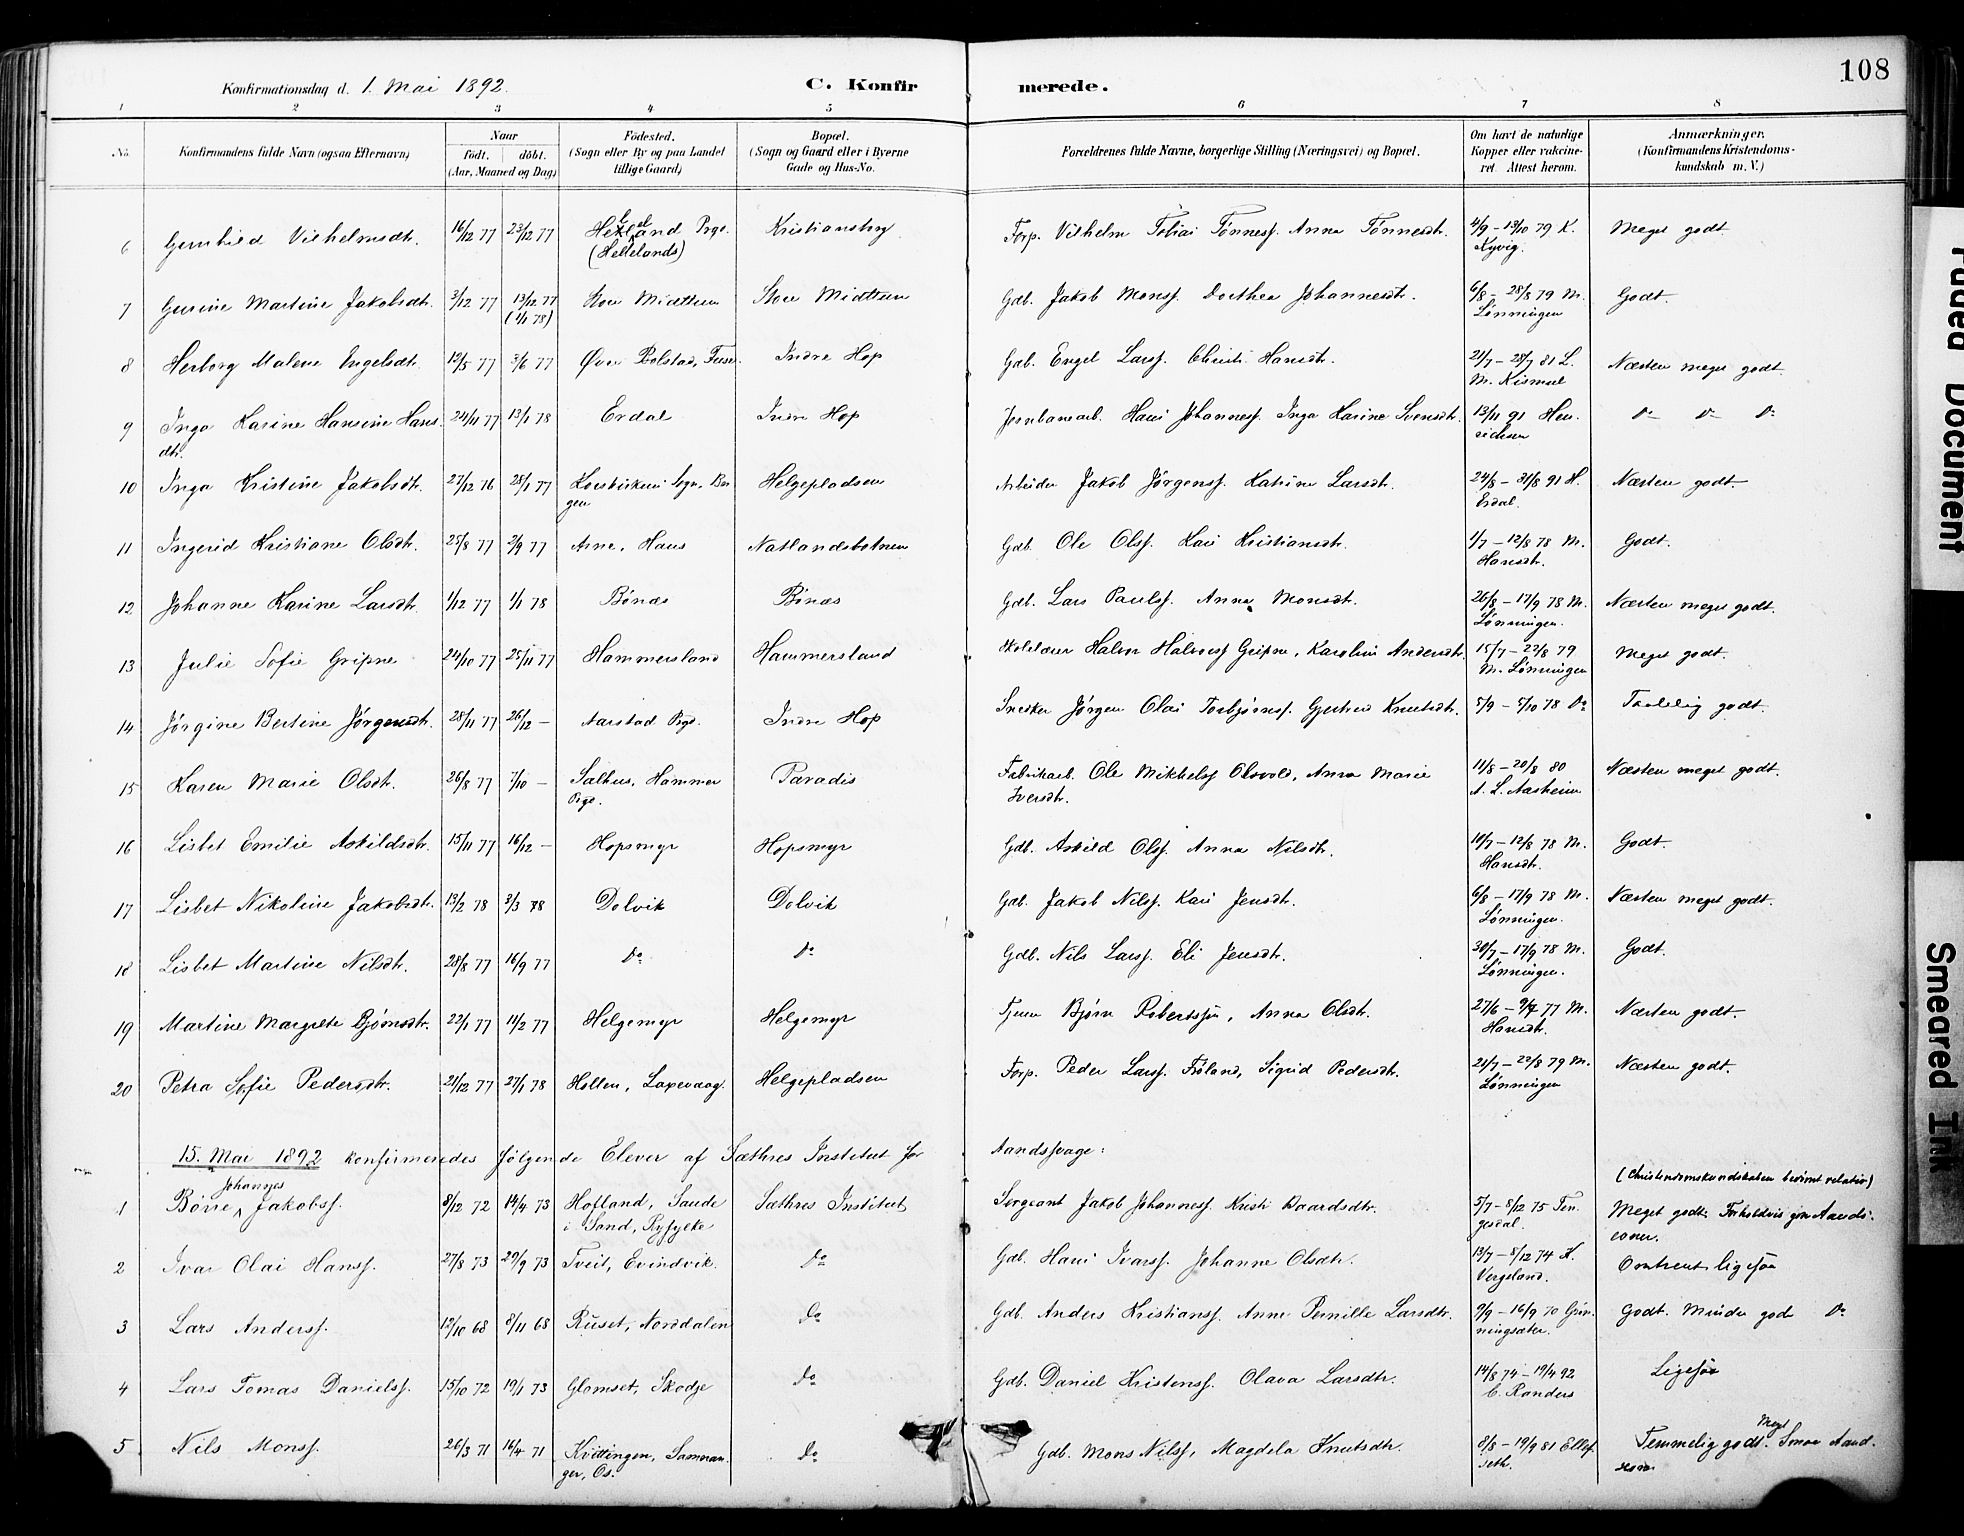 108
Konfirmationsdag d. 1. Mai 1892. C. Konfirmerede.
1 2 3 4 5 6 7 8
No. Konfirmandens fulde Navn (ogsaa Efternavn) Naar födt. döbt. (Aar, Maaned og Dag) Födested. (Sogn eller By og paa Landet tillige Gaard) Bopæl. (Sogn og Gaard eller i Byerne Gade og Hus-No. Forældrenes fulde Navne, borgerlige Stilling (Næringsvei) og Bopæl. Om havt de naturlige Kopper eller vakcineret. Attest herom. Anmærkninger. (Konfirmandens Kristendomskundskab m. V.)
6 Gunhild Vilhelmsdtr. 16/12 77 23/12 77 Helland Prgd. (Hellelands) Kristiansborg Forp. Vilhelm Tobias Tönness. Anna Tönnesdtr. 4/9 – 13/10 79 K. Kyvig. Meget godt.
7 Gurine Martine Jakobsdtr. 3/12 77 13/12 77 (1/1 78) Store Midttun Store Midttun Gdb. Jakob Monss. Dorthea Johannesdtr. 6/8 – 28/8 79 M. Lønningen Godt.
8 Herborg Malene Engelsdtr. 12/5 77 3/6 77 Øvre Bolstad, Fuse. Indre Hop Gdb. Engel Larss. Christi Hansdtr. 21/7 – 28/7 81 L. M. Kismul Næsten meget godt.
9 Inga Karine Hansine Hansdtr. 24/11 77 13/1 78 Erdal Indre Hop Jernbanearb. Hans Johanness. Inga Karine Svensdtr. 13/11 91 Henrichsen Do Do Do
10 Inga Kristine Jakobsdtr. 27/12 76 28/1 77 Korskirkens Sogn, Bergen Helgepladsen Arbeider Jakob Jørgenss. Katrine Larsdtr. 24/8 – 31/8 91 H. Erdal. Næsten godt.
11 Ingerid Kristiane Olsdtr. 25/8 77 2/9 77 Arne, Haus Natlandsbotnen Gdb. Ole Olss. Kari Kristiansdtr. 1/7 – 12/8 78 M. Hansdtr. Godt.
12 Johanne Karine Larsdtr. 1/12 77 1/1 78 Bönæs Bönæs Gdb. Lars Paulss. Anna Monsdtr. 26/8 – 17/9 78 M. Lønningen. Næsten meget godt.
13 Julie Sofie Gripne 24/10 77 25/11 77 Hammersland Hammersland Skolelærer Halvor Halvorss Gripne, Karoline Andersdtr. 15/7 – 22/8 79 M. Lønningen Meget godt.
14 Jørgine Bertine Jørgensdtr. 28/11 77 26/12 – Aarstad Prgd. Indre Hop Snedker Jørgen Olai Torbjørnss. Gjertrud Knutsdtr. 5/9 – 5/10 78 Do Taalelig godt.
15 Karen Marie Olsdtr. 26/8 77 7/10 – Salhus, Hammer Prgd. Paradis Fabrikarb. Ole Mikkelss Olsvold, Anna Marie Iversdtr. 11/8 – 20/8 80 A. L. Aasheim Næsten meget godt.
16 Lisbet Emilie Askildsdtr. 15/11 77 16/12 – Hopsmyr Hopsmyr Gdb. Askild Olss. Anna Nilsdtr. 10/7 – 12/8 78 M. Hansdtr. Godt.
17 Lisbet Nikoline Jakobsdtr. 13/2 78 3/3 78 Dolvik Dolvik Gdb. Jakob Nilss. Kari Jensdtr. 6/8 – 17/9 78 M. Lønningen. Næsten meget godt.
18 Lisbet Martine Nilsdtr. 28/8 77 16/9 77 Do Do Gdb. Nils Larss. Eli Jensdtr. 30/7 – 17/9 78 M. Lønningen. Godt.
19 Martine Margrete Bjørnsdtr. 22/1 77 11/2 77 Helgemyr Helgemyr Bjørn Robertssön, Anna Olsdtr. 27/6 – 9/7 77 M. Hansdtr. Næsten godt.
20 Petra Sofie Pedersdtr. 21/12 77 27/1 78 Holten, Laxevaag. Helgepladsen Forp. Peder Larss. Fröland, Sigrid Pedersdtr. 21/7 – 22/8 79 M. Lønningen Næsten godt.
15. Mai 1892 konfirmeredes følgende Elever af Sæthres Institut for Aandssvage:
(Christendomskundskaben bedömt relativ)
1 Börre Johannes Jakobss. 8/12 72 14/4 73 Hofland, Saude i Sand, Ryfylke Sæthres Institut Sergeant Jakob Johanness. Kristi Baardsdtr. 5/7 – 8/12 75 Tengesdal. Meget godt. Forholdvis gode Aandsevner.
2 Ivar Olai Hanss. 27/8 73 29/9 73 Tveit, Evindvik. Do Gdb. Hans Ivarss. Johanne Olsdtr. 13/7 – 5/12 74 K. Vergeland. Omtrent ligesaa
3 Lars Anderss. 12/10 68 8/11 68 Ruset, Norddalen Do Gdb. Anders Kristianss. Anne Pernille Larsdtr. 9/9 – 16/9 70 Grönningsæter. Godt. Mindre gode Do
4 Lars Tomas Danielss. 15/10 72 19/1 73 Glomset, Skodje Do Gdb. Daniel Kristenss. Olava Larsdtr. 14/8 74 – 19/4 92 C. Randers Ligesaa
5 Nils Monss. 26/3 71 16/4 71 Kvittingen, Samnanger, Os. Do Gdb. Mons Nilss, Magdela Knutsdtr. 8/8 – 19/9 81 Ellefseth. Temmelig godt. Meget Smaa Aandsevner
Faded Document
Smeared Ink